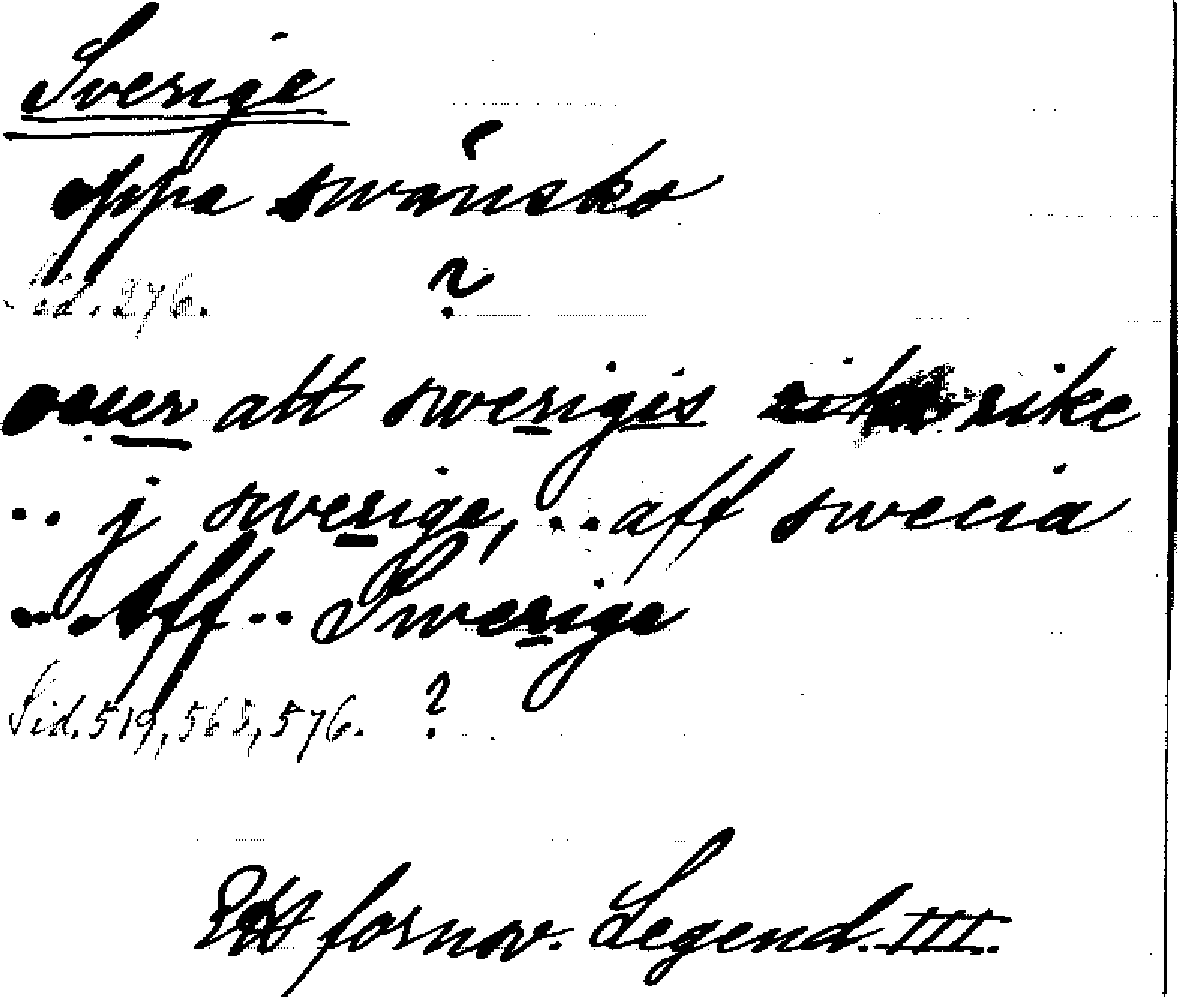 Sverige
oppa swänsko
Sid. 276. ?
ower alt swerigis rike
.. j swerige, .. aff swecia
.. Aff .. Swerige
Sid. 519, 568, 576. ?
Ett fornsv. Legend. III.